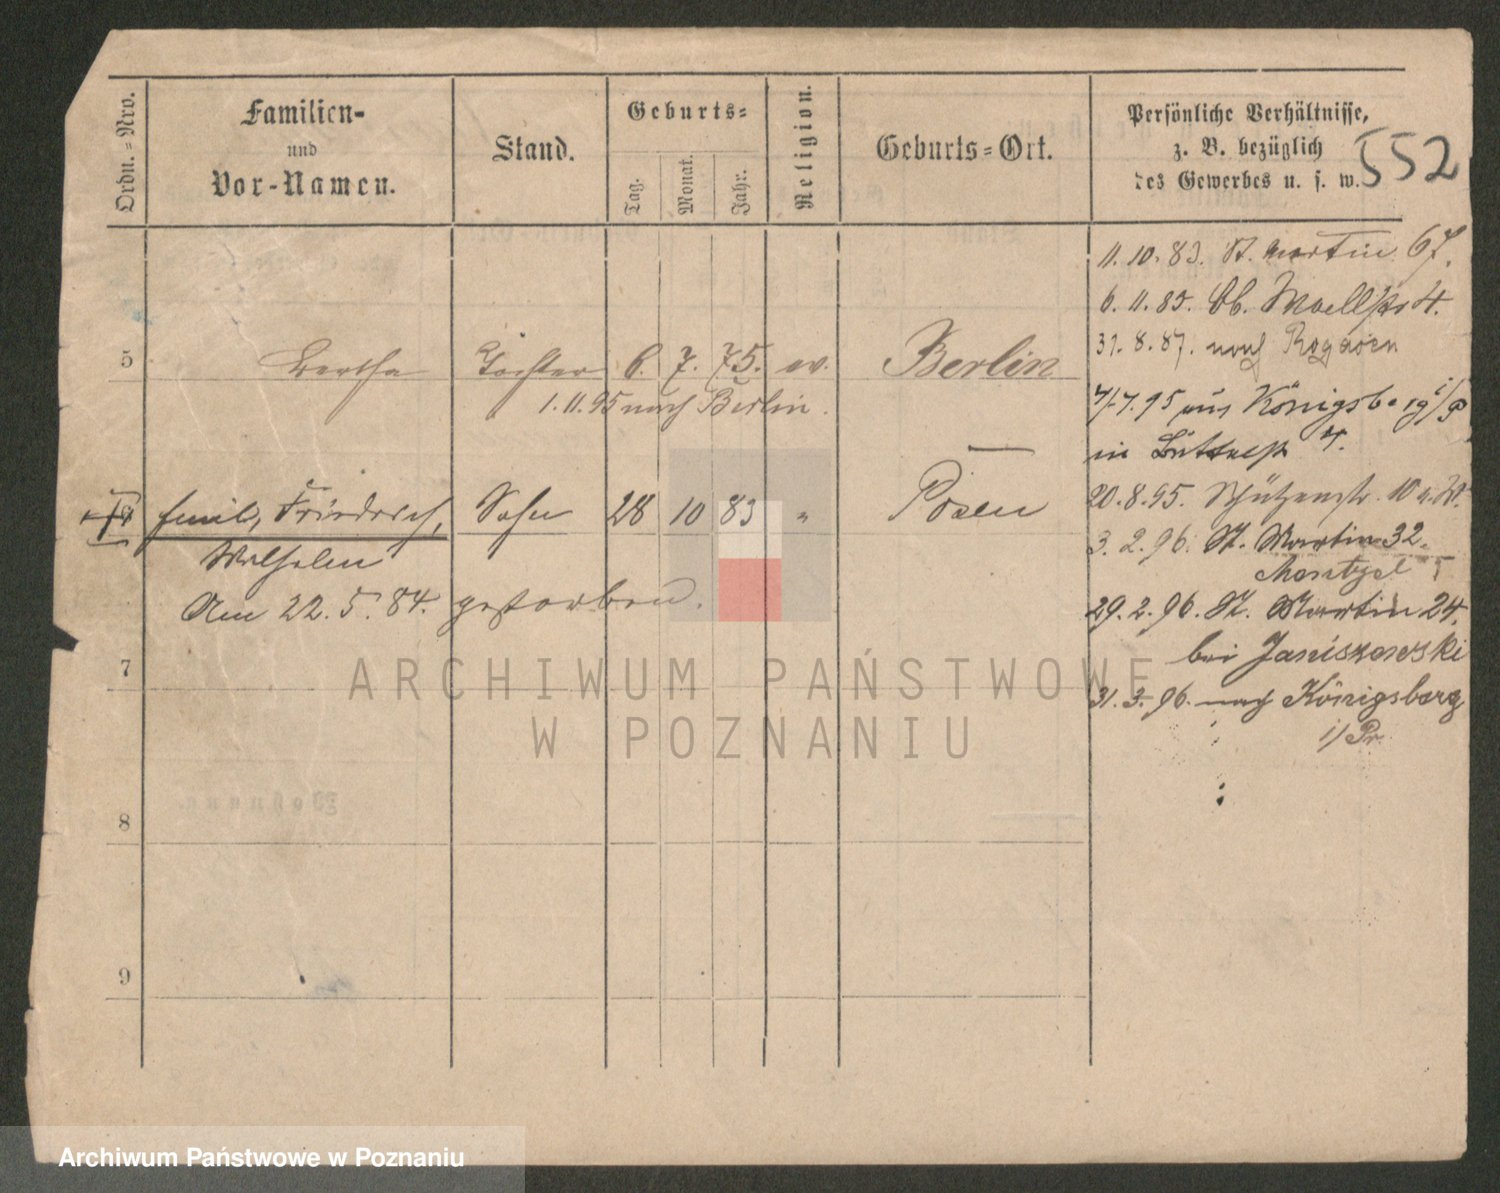 Ordn.=Nro.
Familien-
und
Vor-Namen.
Stand.
Geburts=
Tag.
Monat.
Jahr.
Religion.
Geburts=Ort.
Persönliche Verhältnisse,
z. B. bezüglich
des Gewerbes u. s. w.
552
11. 10. 83. St. Martin 67.
6. 11. 85.
31. 8. 87. nach Rogasen
5 Bertha Tochter 6. 7. 75. ev. Berlin
1. 11. 95 nach Berlin.
95 aus Königsberg i/P
in 4.
Emil, Friedrich, Sohn 28 10 83 " Posen
Wilhelm
20. 8. 95. Schützenstr. 10
3. 2. 96. St. Martin 32.
Am 22. 5. 84. gestorben.
29. 2. 96. St. Martin 24.
bei Janiszewski
7
31. 3. 96. nach Königsberg
i/Pr
8
9
ARCHIWUM PAŃSTWOWE
W POZNANIU
Archiwum Państwowe w Poznaniu